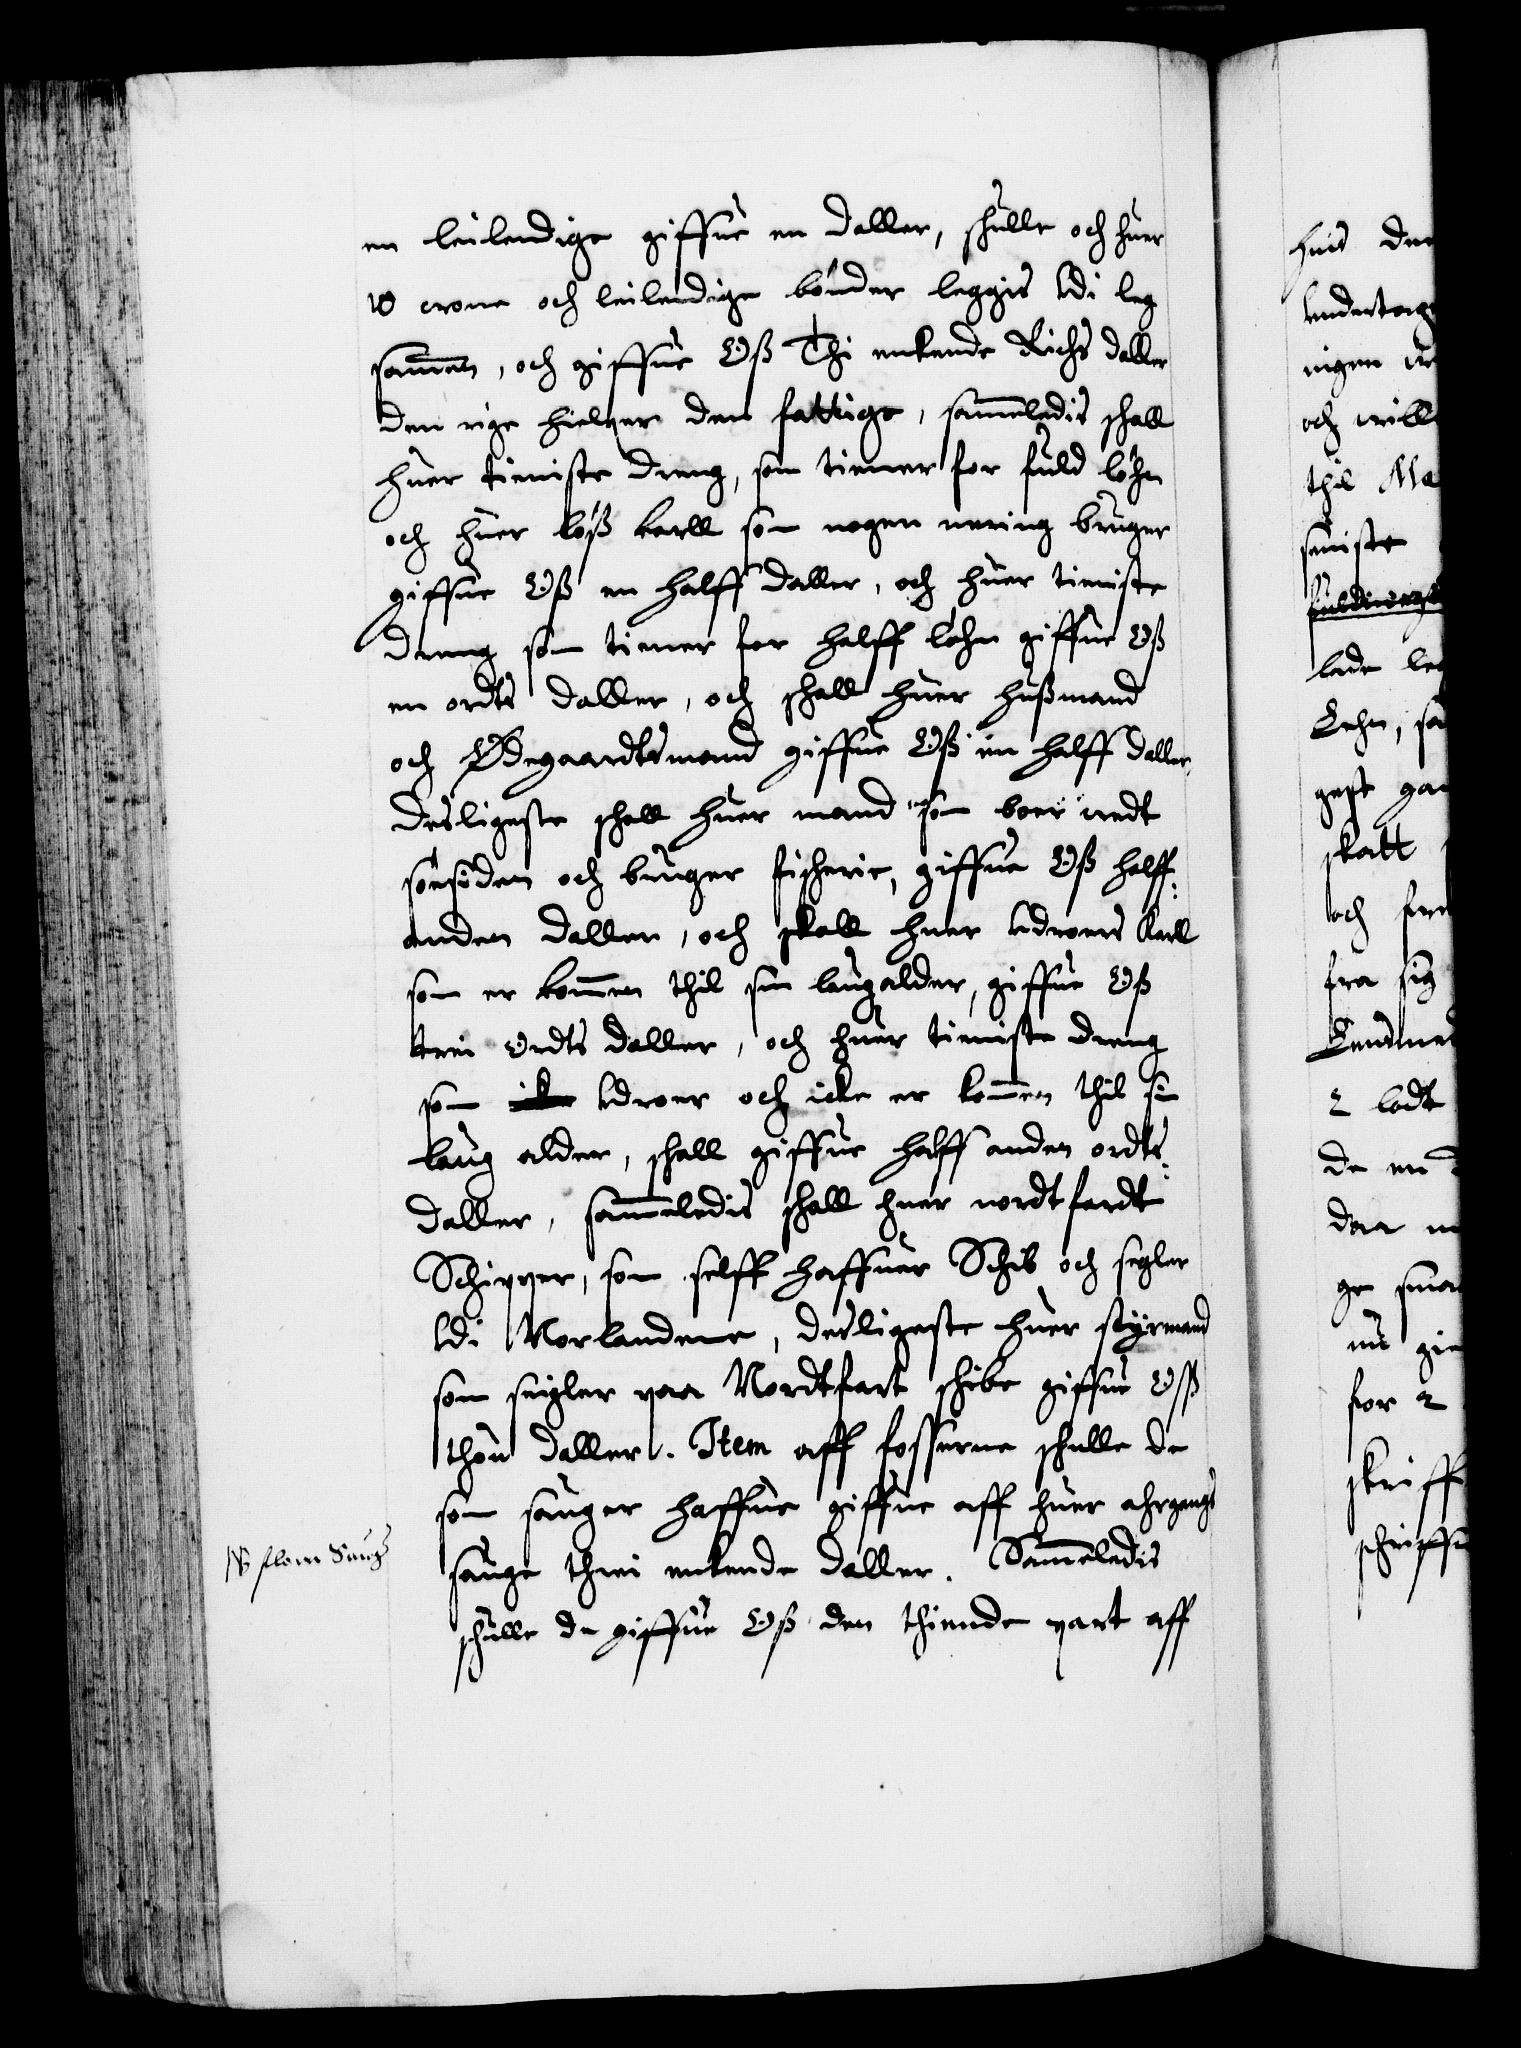 en leilendige giffue en daller, shulle och huer
10 crone och leilendige bönder leggis Udi leg
sammen, och giffue Oß Thi enkende Richs daller
den rige hielper den fattige, sammeledis shall
huer tieniste dreng, som tiener for fuld löhn
och huer löß karll som nogen nering bruger
giffue Oß en halff daller, och huer tieniste
dreng som tiener for halff löhn giffue Oß
en ordts daller, och shall huer hußmand
och Ødegaardtsmand giffue Oß en halff daller,
desligeste shall huer mand som boer uedt
söesiden och bruger fisherie, giffue Oß halff
anden daller, och skall huer Udroers Karll
som er kommen thil sin laugalder, giffue Oß
trei Ordts daller, och huer tieniste dreng
som icke Udroer och icke er kommen thil sin
laug alder, shall giffue halff anden ordts
daller, sammeledis shall huer nordtfardt
Schipper, som selff haffuer Schib och segler
Udi Norlandene, desligeste huer styrmand
som seigler paa Nordtfart shibe giffue Oß
thou daller. Item aff fosserne shulle de
som sauger haffue giffue aff huer ahrgangs
sauge threi enkende daller. Sammeledis
shulle de giffue Oß den thiende part aff
NB flom Saug
huis den
undertag
nigen
och will
thil Ma
seniste
lade leg
Lehn, sa
gest gan
skatt
och for
fra sig
2 lodt
de en
daa
ge sma
nu gie
for 2
skriff